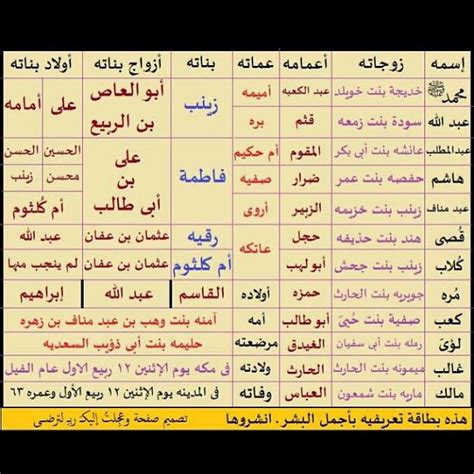 إسمه زوجاته أعمامه عماته بناته أزواج بناته أولاد بناته
محمد ﷺ خديجة بنت خويلد عبد الكعبه أميمه زينب أبو العاص بن الربيع على أمامه
عبد الله سودة بنت زمعه قثم بره
عبدالمطلب عائشه بنت أبى بكر المقوم أم حكيم فاطمة على بن أبى طالب الحسين الحسن
هاشم حفصه بنت عمر ضرار صفيه محسن زينب
عبد مناف زينب بنت خزيمه الزبير أروى أم كلثوم
قصى هند بنت حذيفه حجل عاتكه رقيه عثمان بن عفان عبد الله
كلاب زينب بنت جحش أبو لهب أم كلثوم عثمان بن عفان لم ينجب منها
مره جويريه بنت الحارث حمزه أولاده القاسم عبد الله إبراهيم
كعب صفية بنت حيى أبو طالب أمه آمنه بنت وهب بن عبد مناف بن زهره
لؤى رمله بنت أبى سفيان الغيدق مرضعته حليمه بنت أبى ذؤيب السعديه
غالب ميمونه بنت الحارث الحارث ولادته فى مكه يوم الإثنين ١٢ ربيع الاول عام الفيل
مالك ماريه بنت شمعون العباس وفاته فى المدينه يوم الإثنين ١٢ ربيع الأول وعمره ٦٣
هذه بطاقة تعريفيه بأجمل البشر . انشروها تصميم صفحة وعجلت إليك ربي لترضى